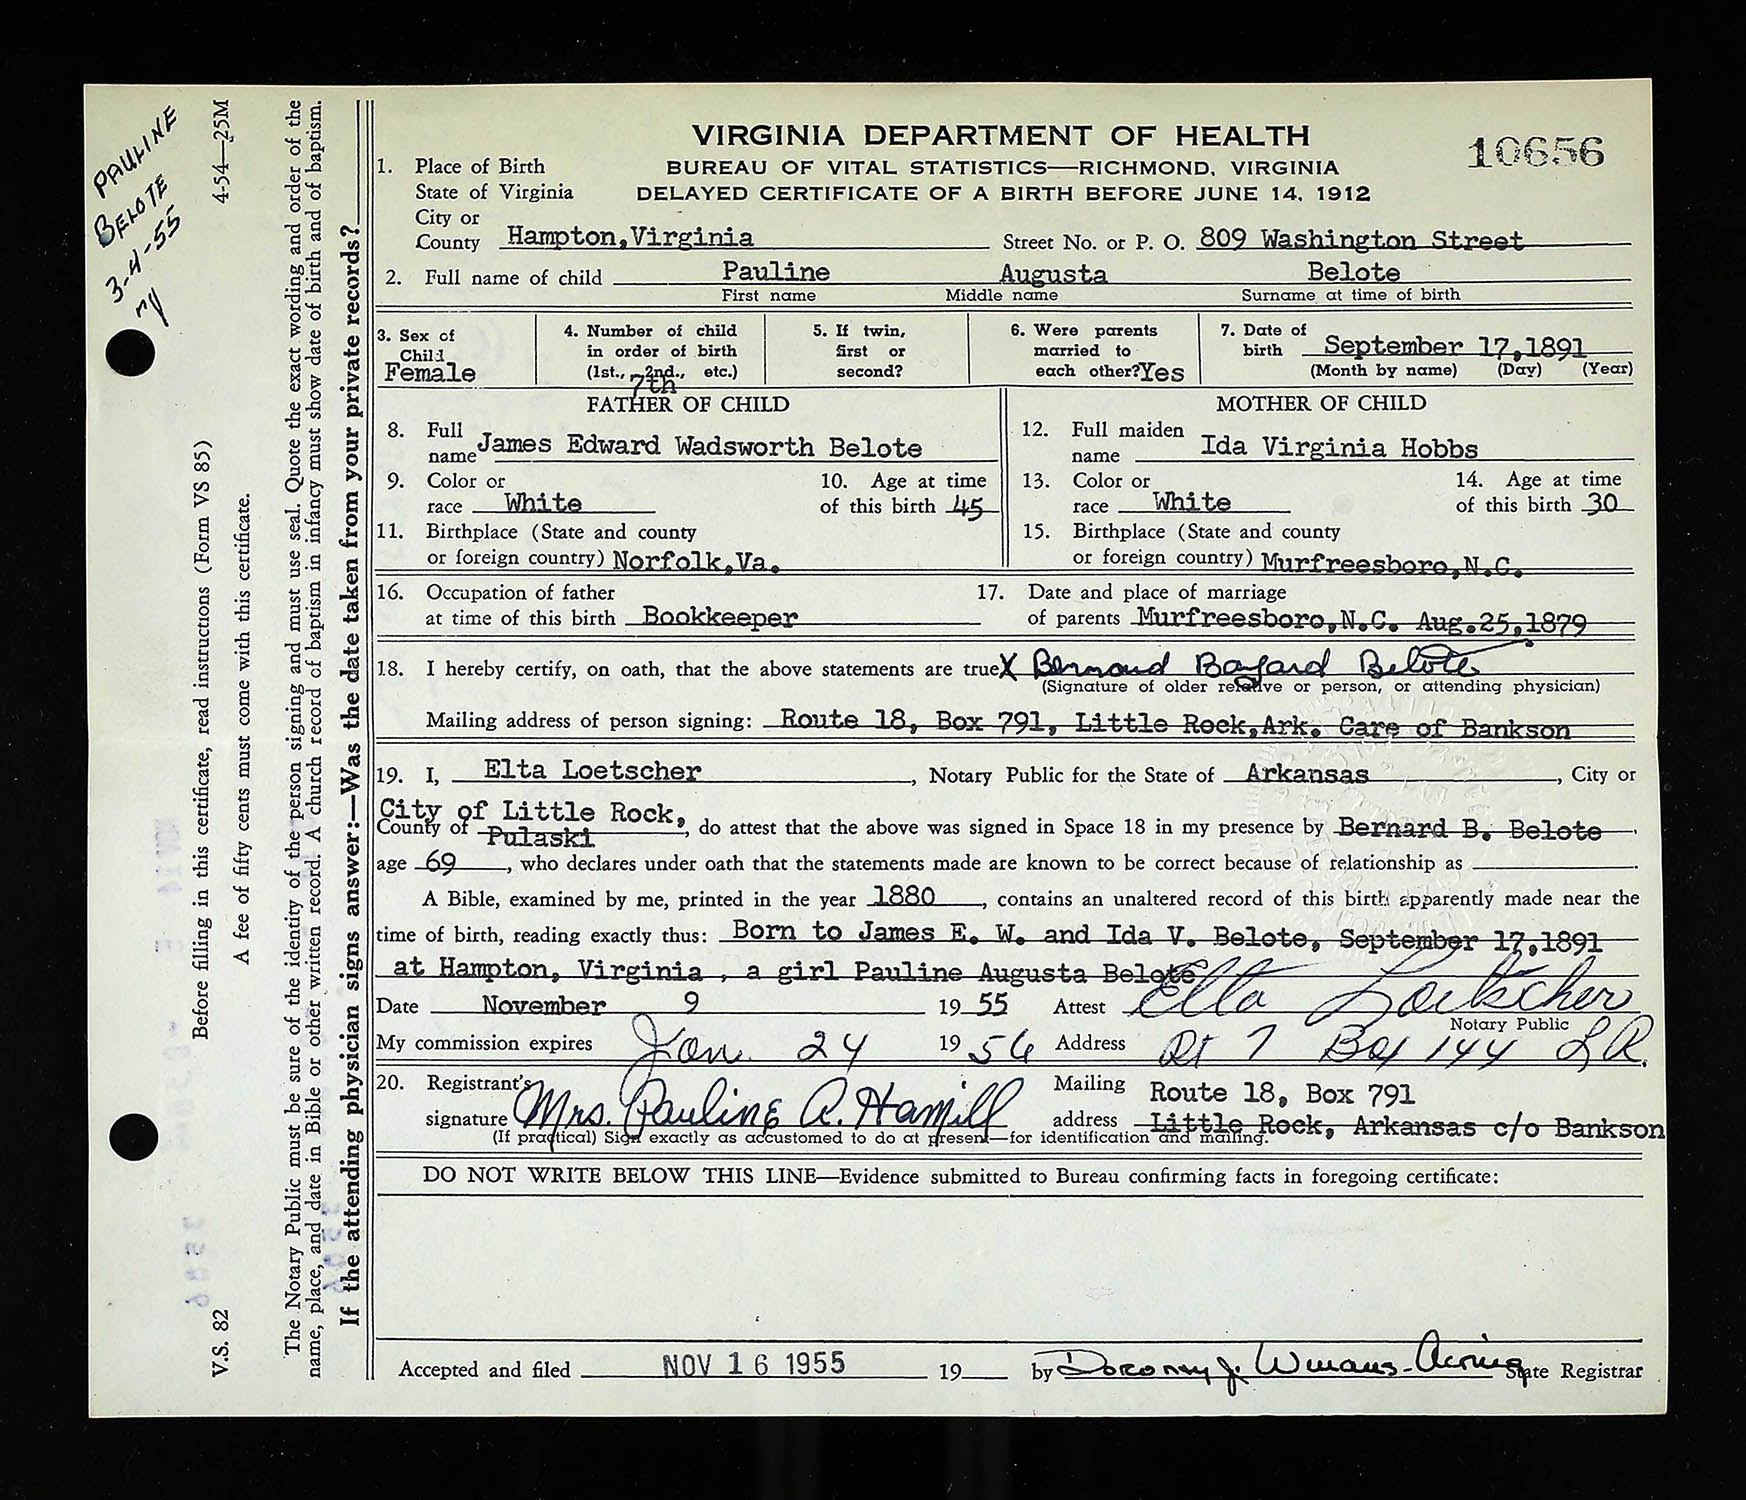 PAULINE
BELOTE
3-4-55
4-54—25M
Before filling in this certificate, read instructions (Form VS 85)
A fee of fifty cents must come with this certificate.
V.S. 82
The Notary Public must be sure of the identity of the person signing and must use seal. Quote the exact wording and order of the
name, place, and date in Bible or other written record. A church record of baptism in infancy must show date of birth and of baptism.
If the attending physician signs answer:—Was the date taken from your private records?
VIRGINIA DEPARTMENT OF HEALTH
10656
BUREAU OF VITAL STATISTICS—RICHMOND, VIRGINIA
DELAYED CERTIFICATE OF A BIRTH BEFORE JUNE 14, 1912
1. Place of Birth
State of Virginia
City or
County Hampton,Virginia Street No. or P. O. 809 Washington Street
2. Full name of child Pauline Augusta Belote
First name Middle name Surname at time of birth
3. Sex of
Child
Female
4. Number of child
in order of birth
(1st., 2nd., etc.)
7th
5. If twin,
first or
second?
6. Were parents
married to
each other?Yes
7. Date of
birth September 17,1891
(Month by name) (Day) (Year)
FATHER OF CHILD
8. Full
name James Edward Wadsworth Belote
9. Color or
race White
10. Age at time
of this birth 45
11. Birthplace (State and county
or foreign country) Norfolk,Va.
MOTHER OF CHILD
12. Full maiden
name Ida Virginia Hobbs
13. Color or
race White
14. Age at time
of this birth 30
15. Birthplace (State and county
or foreign country) Murfreesboro,N.C.
16. Occupation of father
at time of this birth Bookkeeper
17. Date and place of marriage
of parents Murfreesboro,N.C. Aug.25,1879
18. I hereby certify, on oath, that the above statements are true X Bernard Bayard Belote
(Signature of older relative or person, or attending physician)
Mailing address of person signing: Route 18, Box 791, Little Rock,Ark. Care of Bankson
19. I, Elta Loetscher, Notary Public for the State of Arkansas, City or
City of Little Rock,
County of Pulaski, do attest that the above was signed in Space 18 in my presence by Bernard B. Belote.
age 69, who declares under oath that the statements made are known to be correct because of relationship as
A Bible, examined by me, printed in the year 1880, contains an unaltered record of this birth apparently made near the
time of birth, reading exactly thus: Born to James E. W. and Ida V. Belote, September 17,1891
at Hampton, Virginia , a girl Pauline Augusta Belote
Date November 9 19 55 Attest Elta Loetscher
Notary Public
My commission expires Jan. 24 19 56 Address Rt 7 Box 144 L R.
20. Registrant's
signature Mrs. Pauline A. Hamill
Mailing
address Route 18, Box 791
Little Rock, Arkansas c/o Bankson
(If practical) Sign exactly as accustomed to do at present—for identification and mailing.
DO NOT WRITE BELOW THIS LINE—Evidence submitted to Bureau confirming facts in foregoing certificate:
Accepted and filed NOV 16 1955 19 by Dorothy J. Winans-Acting State Registrar